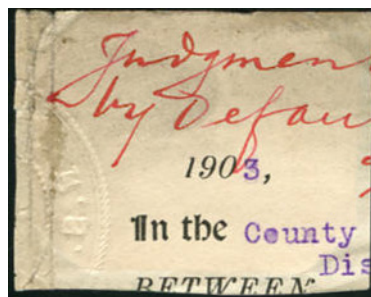 Judgmen
by Defau
1903,
In the County
Dis
BETWEEN